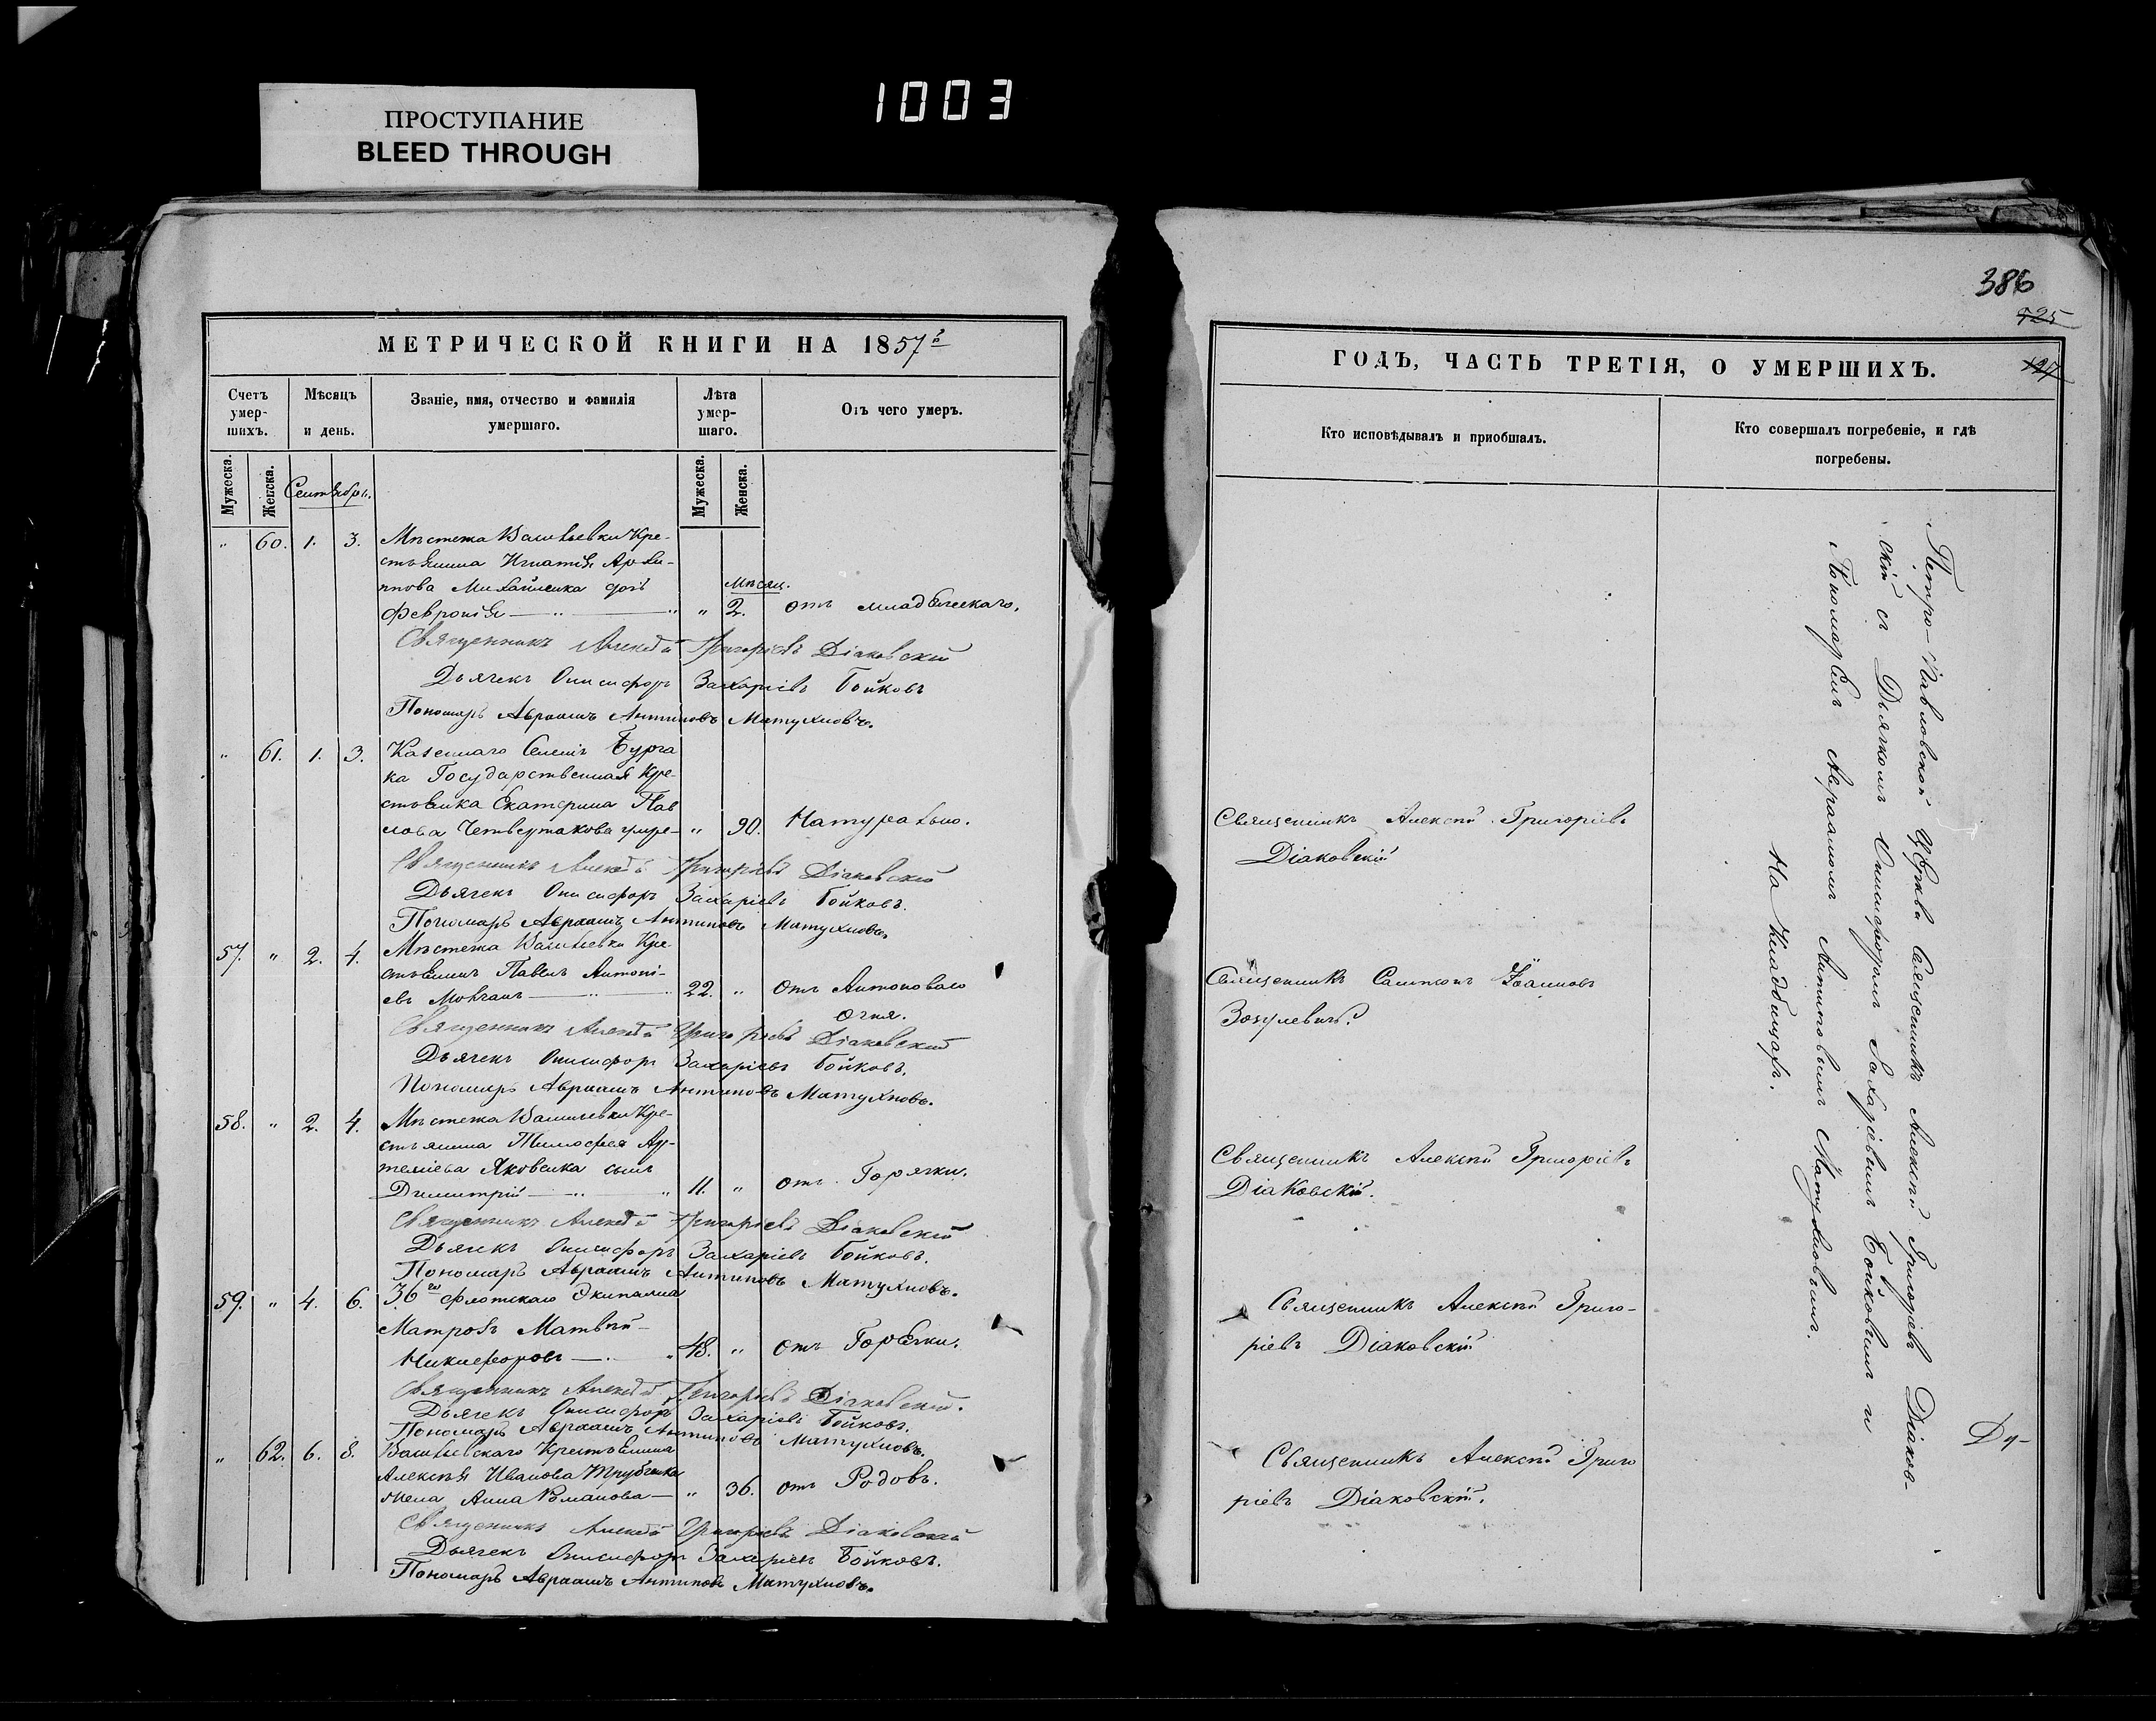 1003
ПРОСТУПАНИЕ
BLEED THROUGH
МЕТРИЧЕСКОЙ КНИГИ НА 1857й
Счетъ умер-шихъ.
Мѣсяцъ и день.
Званіе, имя, отчество и фамилія умершаго.
Лѣта умер-шаго.
Отъ чего умеръ.
Мужеска.
Женска.
Сентябрь.
Мужеска.
Женска.
„ 60. 1. 3. Мѣстечка Васильевки Кре-
стьянина Игнатія Архи-
пова Михайленка дочь
Мѣсяц.
Февронія — „ — „ „ 2. отъ младенческаго.
Священникъ Алексѣй Григоріевъ Діаковскій
Дьячекъ Онисифоръ Захаріевъ Бойковъ
Пономарь Авраамъ Антиповъ Матухновъ.
„ 61. 1. 3. Казеннаго Селенія
ка Государственная Кре-
стьянка Екатерина Пав
лова Четвертакова умре- „ 90. Натурально.
Священникъ Алексѣй Григоріевъ Діаковскій
Дьячекъ Онисифоръ Захаріевъ Бойковъ.
Пономарь Авраамъ Антиповъ Матухновъ.
57. „ 2. 4. Мѣстечка Васильевки Кре-
стьянинъ Павелъ Антоні-
евъ Мовчанъ — „ — „ 22. „ Отъ Антоноваго
Огня.
Священникъ Алексѣй Григоріевъ Діаковскій
Дьячекъ Онисифоръ Захаріевъ Бойковъ.
Пономарь Авраамъ Антиповъ Матухновъ.
58. „ 2. 4. Мѣстечка Васильевки Кре-
стьянина Тимофея Ар-
темієва Яковенка сынъ
Димитрій — „ — „ 11. „ отъ Горячки.
Священникъ Алексѣй Григоріевъ Діаковскій
Дьячекъ Онисифоръ Захаріевъ Бойковъ.
Пономарь Авраамъ Антиповъ Матухновъ.
59. „ 4. 6. 36го Флотскаго Экипажа
Матрозъ Матвѣй
Никифоровъ — „ 48. „ отъ Горячки.
Священникъ Алексѣй Григоріевъ Діаковскій.
Дьячекъ Онисифоръ Захаріевъ Бойковъ.
Пономарь Авраамъ Антиповъ Матухновъ.
„ 62. 6. 8. Васильевскаго Крестьянина
Алексѣя Иванова Трубченка
жена Анна Романова — „ 36. отъ Родовъ.
Священникъ Алексѣй Григоріевъ Діаковскій
Дьячекъ Онисифоръ Захаріевъ Бойковъ.
Пономарь Авраамъ Антиповъ Матухновъ.
386
425
ГОДЪ, ЧАСТЬ ТРЕТІЯ, О УМЕРШИХЪ.
Кто исповѣдывалъ и пріобщалъ.
Кто совершалъ погребеніе, и гдѣ
погребены.
Священникъ Алексѣй Григоріевъ
Діаковскій
Священникъ Іоанновъ
Священникъ Алексѣй Григоріевъ
Діаковскій.
Священникъ Алексѣй Григо-
ріевъ Діаковскій
Священникъ Алексѣй Григо
ріевъ Діаковскій.
Петро-Павловской Церкви Священникъ Алексѣй Григоріевъ Діаков-
скій съ Дьячкомъ Онисифоромъ Захаріевымъ Бойковымъ и
Пономаремъ Авраамомъ Антиповымъ Матухновымъ.
На Кладбищахъ.
Ду-